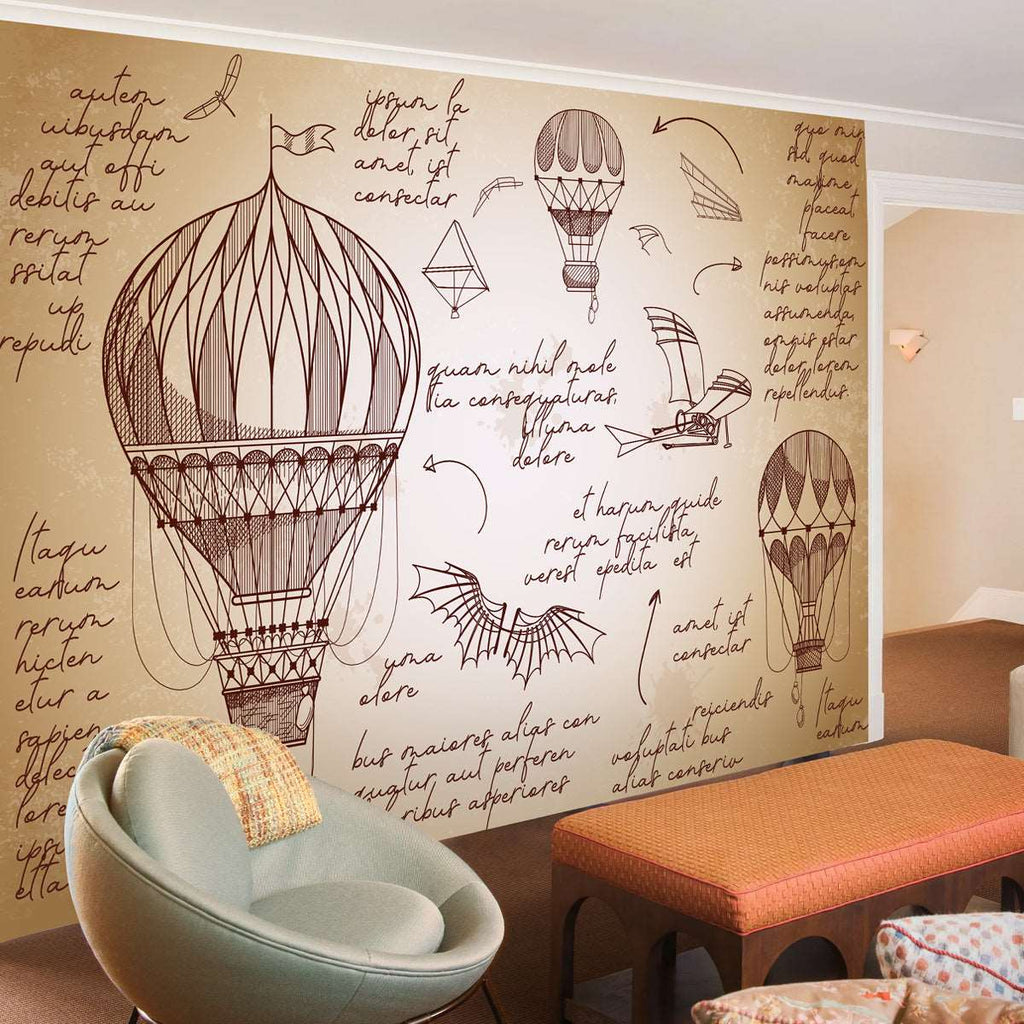 autem
uibusdam
aut offi
debitis au
rerum
ssitat
up
repudi
ipsum la
dolor, sit
amet, ist
consectar
quo min
sid, quod
maxime,
placeat,
facere
possimus,om
nis voluptas
assumenda,
omnis estar
dolor, lorem
repellendus.
quam nihil mole
tia consequaturas,
illuma
dolore
et harum quide
rerum facilista,
verest epedita est
Itaqu
earuum
rerum
hicten
etur a
sapien
delec
lore
ipsu
etta
uma
olore
amet ist
consectar
bus maiores alias con
augtur aut perferen
ribus asperiores
reiciendis
voluptati bus
alias conseriv
Itaqu
earuum